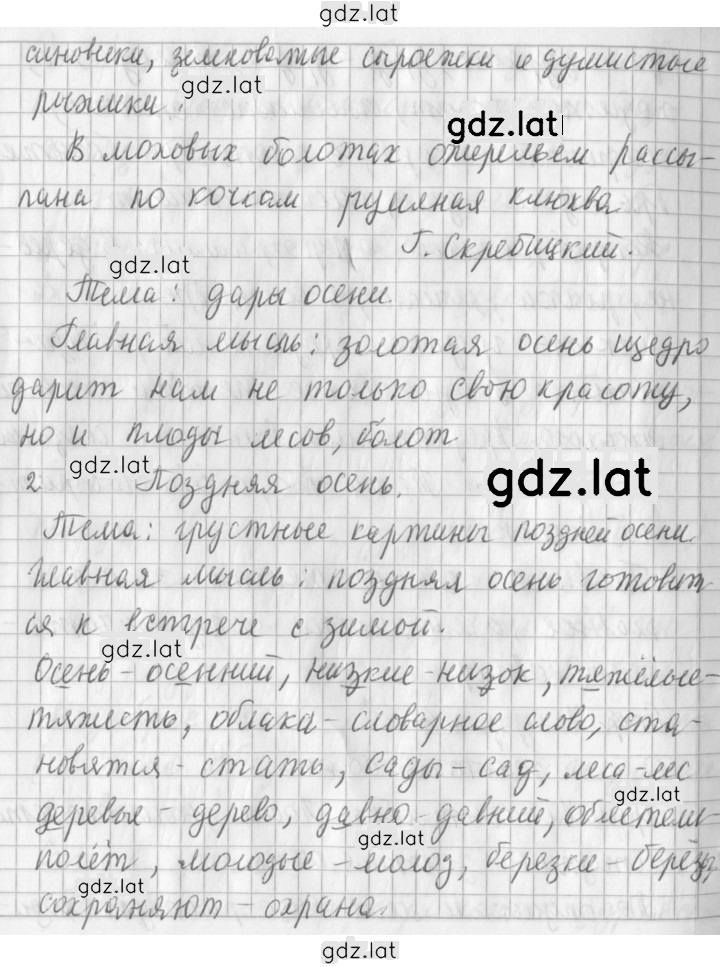 gdz.lat
синовики, земковатые сыроежки и душистые
gdz.lat
рыжики.
gdz.lat
В моховых болотах ожерельем рассы-
пана по кочкам румяная клюква
Г. Скребицкий.
gdz.lat
Тема: дары осени.
Главная мысль: золотая осень щедро
дарит нам не только свою красоту,
но и плоды лесов, болот
gdz.lat
2 Поздняя осень.
gdz.lat
Тема: грустные картины поздней осени.
Главная мысль: поздняя осень готовит
ся к встрече с зимой.
gdz.lat
Осень - осенний, низкие - низок, тяжёлые -
тяжесть, облака - словарное слово, ста-
новятся - стать, сады - сад, леса - лес
gdz.lat
деревья - дерево, давно - давний, облетели
gdz.lat
полёт, молодые - молод, березки - берёза,
gdz.lat
сохраняют - охрана.
gdz.lat